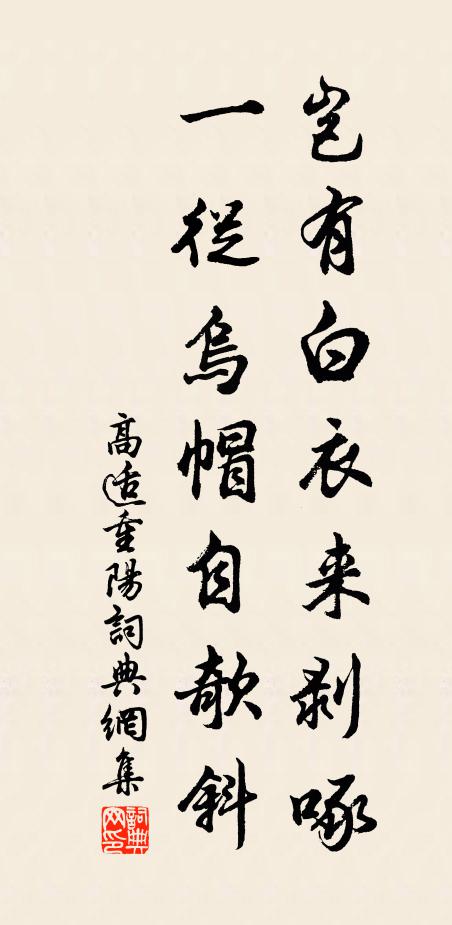 豈有白衣来剥啄
一從烏帽自欹斜
高适重陽詞典網集
詞典網印